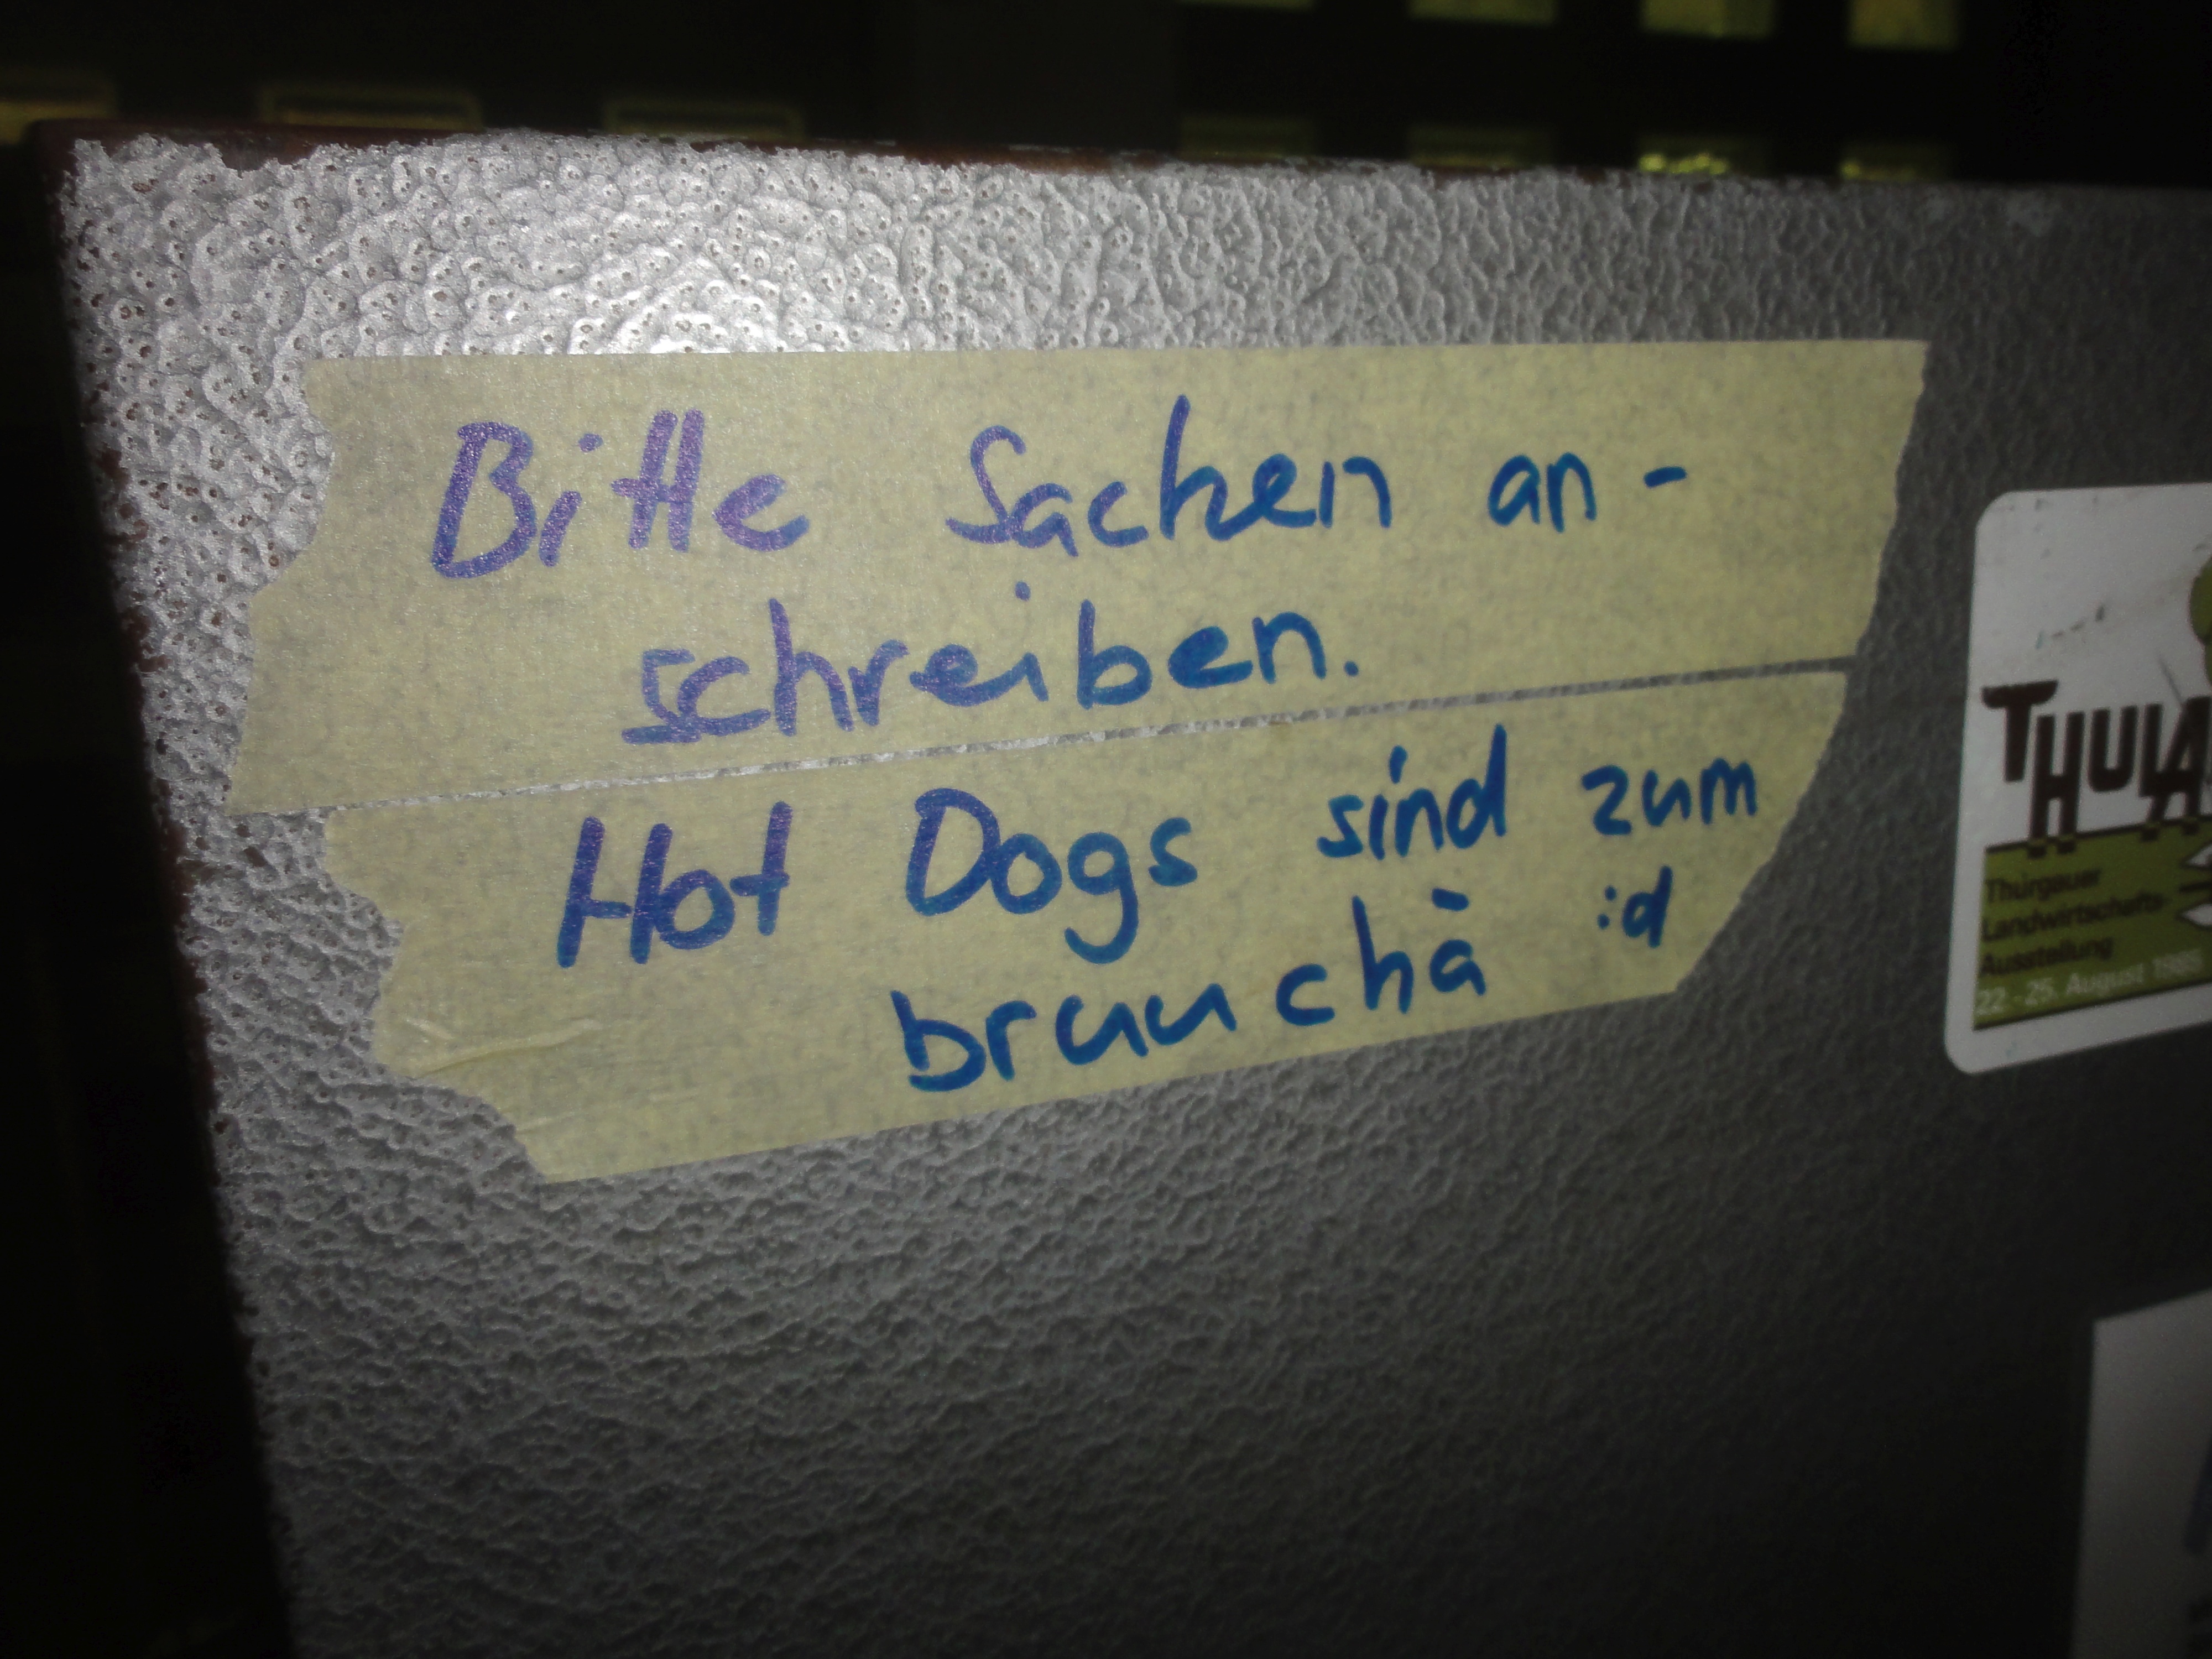 Bitte Sachen an-
schreiben.
Hot Dogs sind zum
bruuchà :d
THULA
Thurgauer
Landwirtschafts-
Ausstellung
22.-25. August 1985